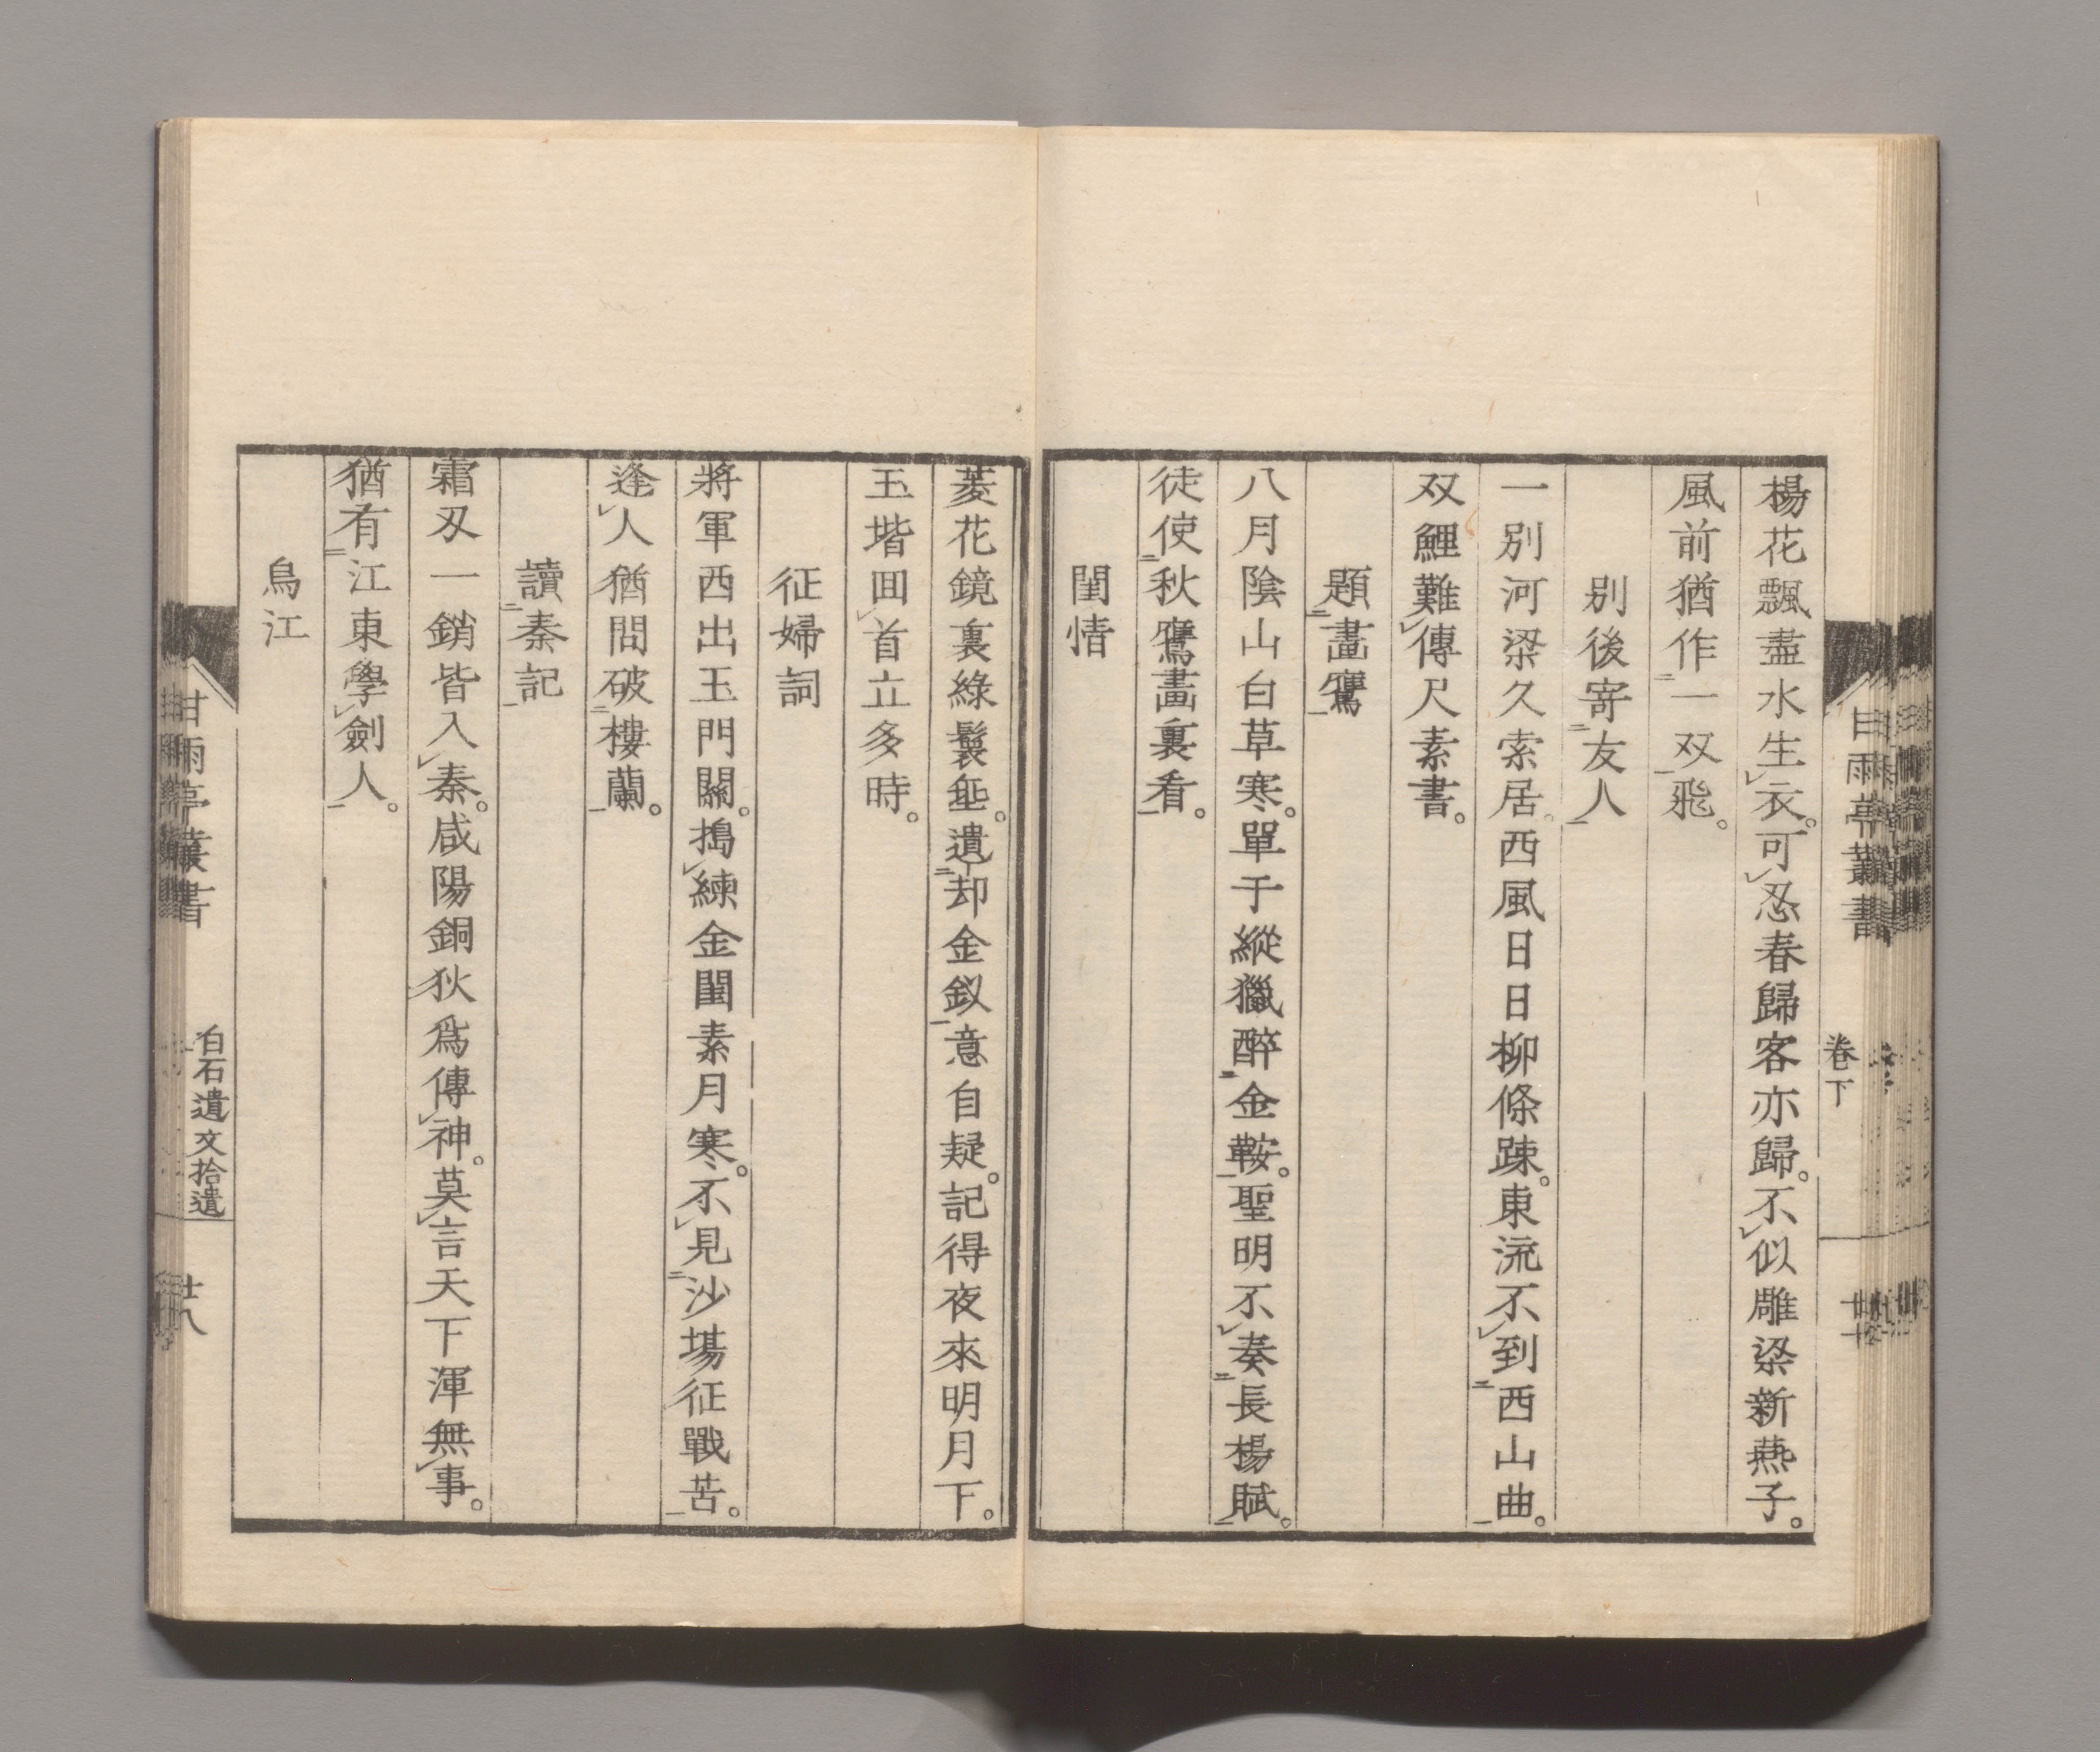 楊花飄盡水生衣。可忍春歸客亦歸。不似雕梁新燕子。
風前猶作一双飛。
別後寄友人
一別河梁久索居。西風日日柳條踈。東流不到西山曲。
双鯉難傳尺素書。
題畫鷹
八月陰山白草寒。單于縱獵醉金鞍。聖明不奏長楊賦。
徒使秋鷹畫裏看。
閨情
菱花鏡裏綠鬟垂。遺却金釵意自疑。記得夜來明月下。
玉堦囬首立多時。
征婦詞
將軍西出玉門關。搗練金閨素月寒。不見沙場征戰苦。
逢人猶問破樓蘭。
讀秦記
霜刃一銷皆入秦。咸陽銅狄爲傳神。莫言天下渾無事。
猶有江東學劍人。
烏江
甘雨亭叢書
卷下
甘雨亭叢書
白石遺文拾遺
廿八